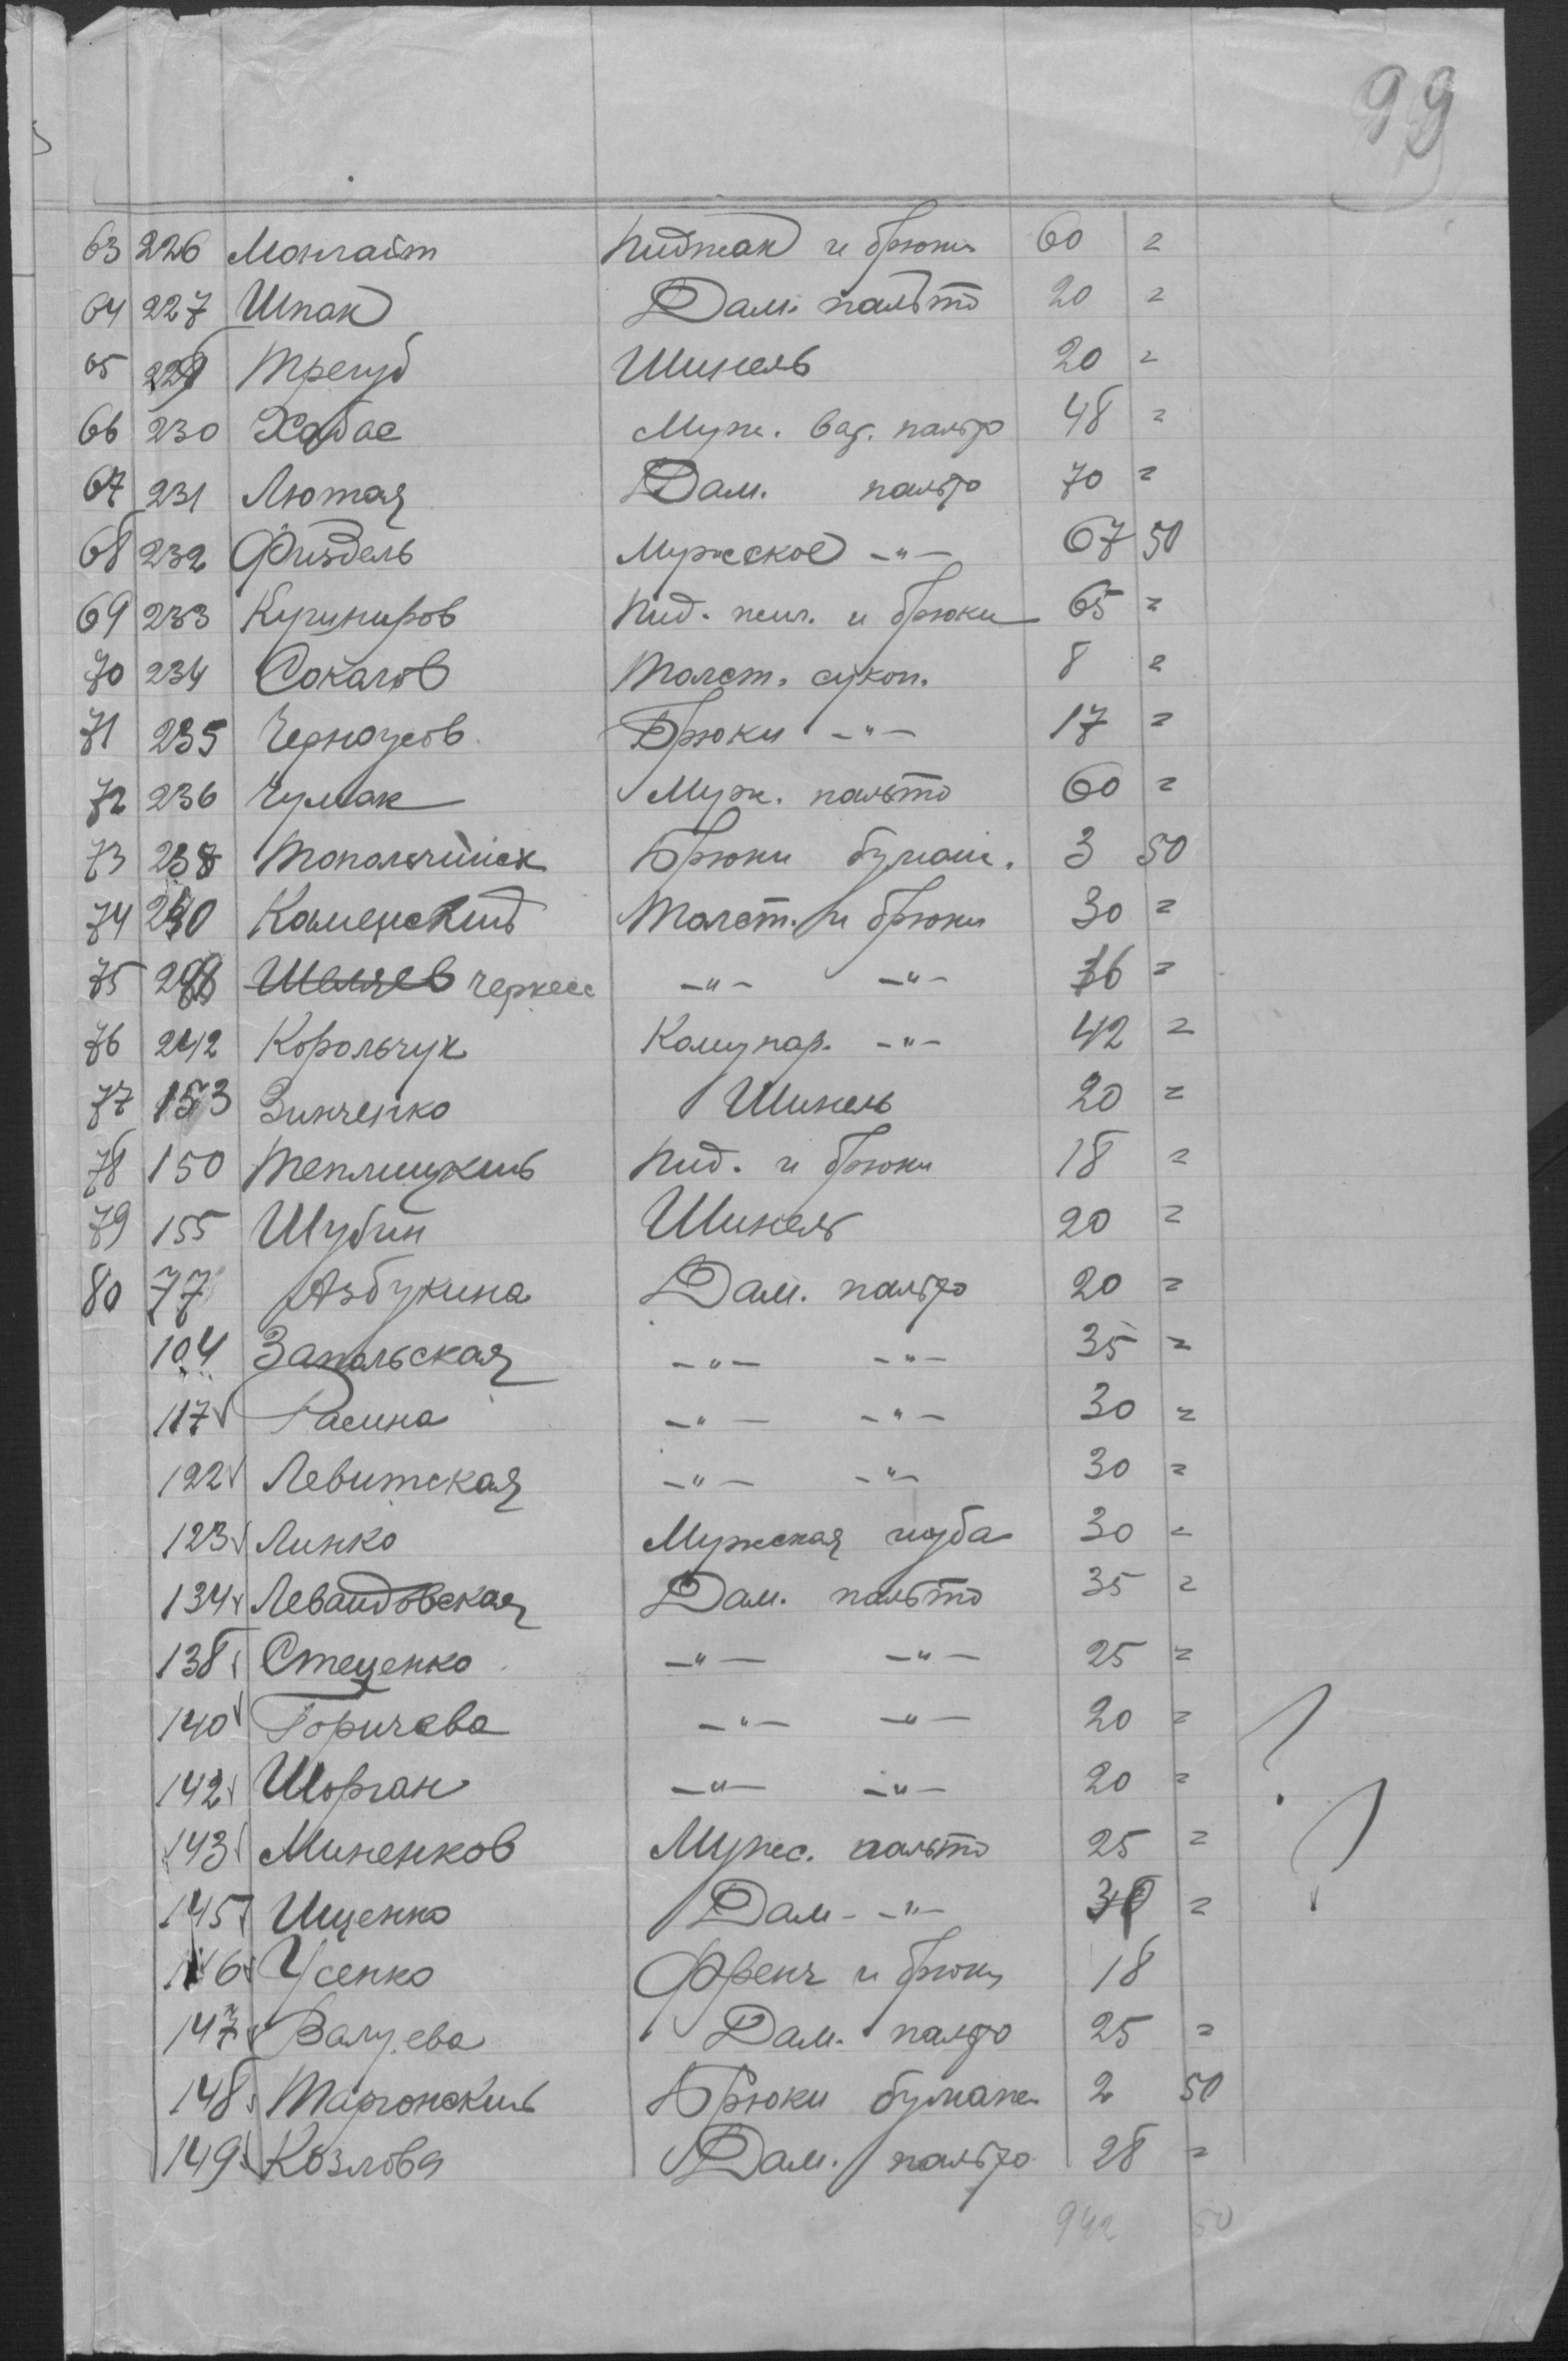 99
63 226 Монгайт Пиджак и брюки 60 =
64 227 Шпак Дам. пальто 20 =
65 229 Трегуб Шинель 20 =
66 230 Хабас Муж. ват. пальто 48 =
67 231 Лютая Дам. пальто 70 =
68 232 Физдель Мужское -"- 67 50
69 233 Пид. жил. и брюки 65 =
70 234 Сокалов Толст. сукон. 8 =
71 235 Черноусов Брюки -"- 17 =
72 236 Чумак Муж. пальто 60 =
73 238 Топольчийск Брюки бумаж. 3 50
74 240 Каменский Толст. и брюки 30 =
75 Шашев черкесс -"- -"- 36 =
76 242 Корольчук Комунар. -"- 42 =
77 153 Зинченко Шинель 20 =
78 150 Теплицкий Пид. и брюки 18 =
79 155 Шубин Шинель 20 =
80 77 Азбукина Дам. пальто 20 =
104 Запольская -"- -"- 35 =
117 Расина -"- -"- 30 =
122 Левитская -"- -"- 30 =
123 Линко Мужская шуба 30 =
134 Левандовская Дам. пальто 35 =
138 Стеценко -"- -"- 25 =
140 Горичева -"- -"- 20 = ?
142 Шорган -"- -"- 20 =
143 Миненков Мужс. пальто 25 = ?
145 Ищенко Дам- -"- =
146 Усенко Френч и брюки 18
147 Валуева Дам. пальто 25 =
148 Таргонский Брюки бумаж. 2 50
149 Козлова Дам. пальто 28 =
942 50